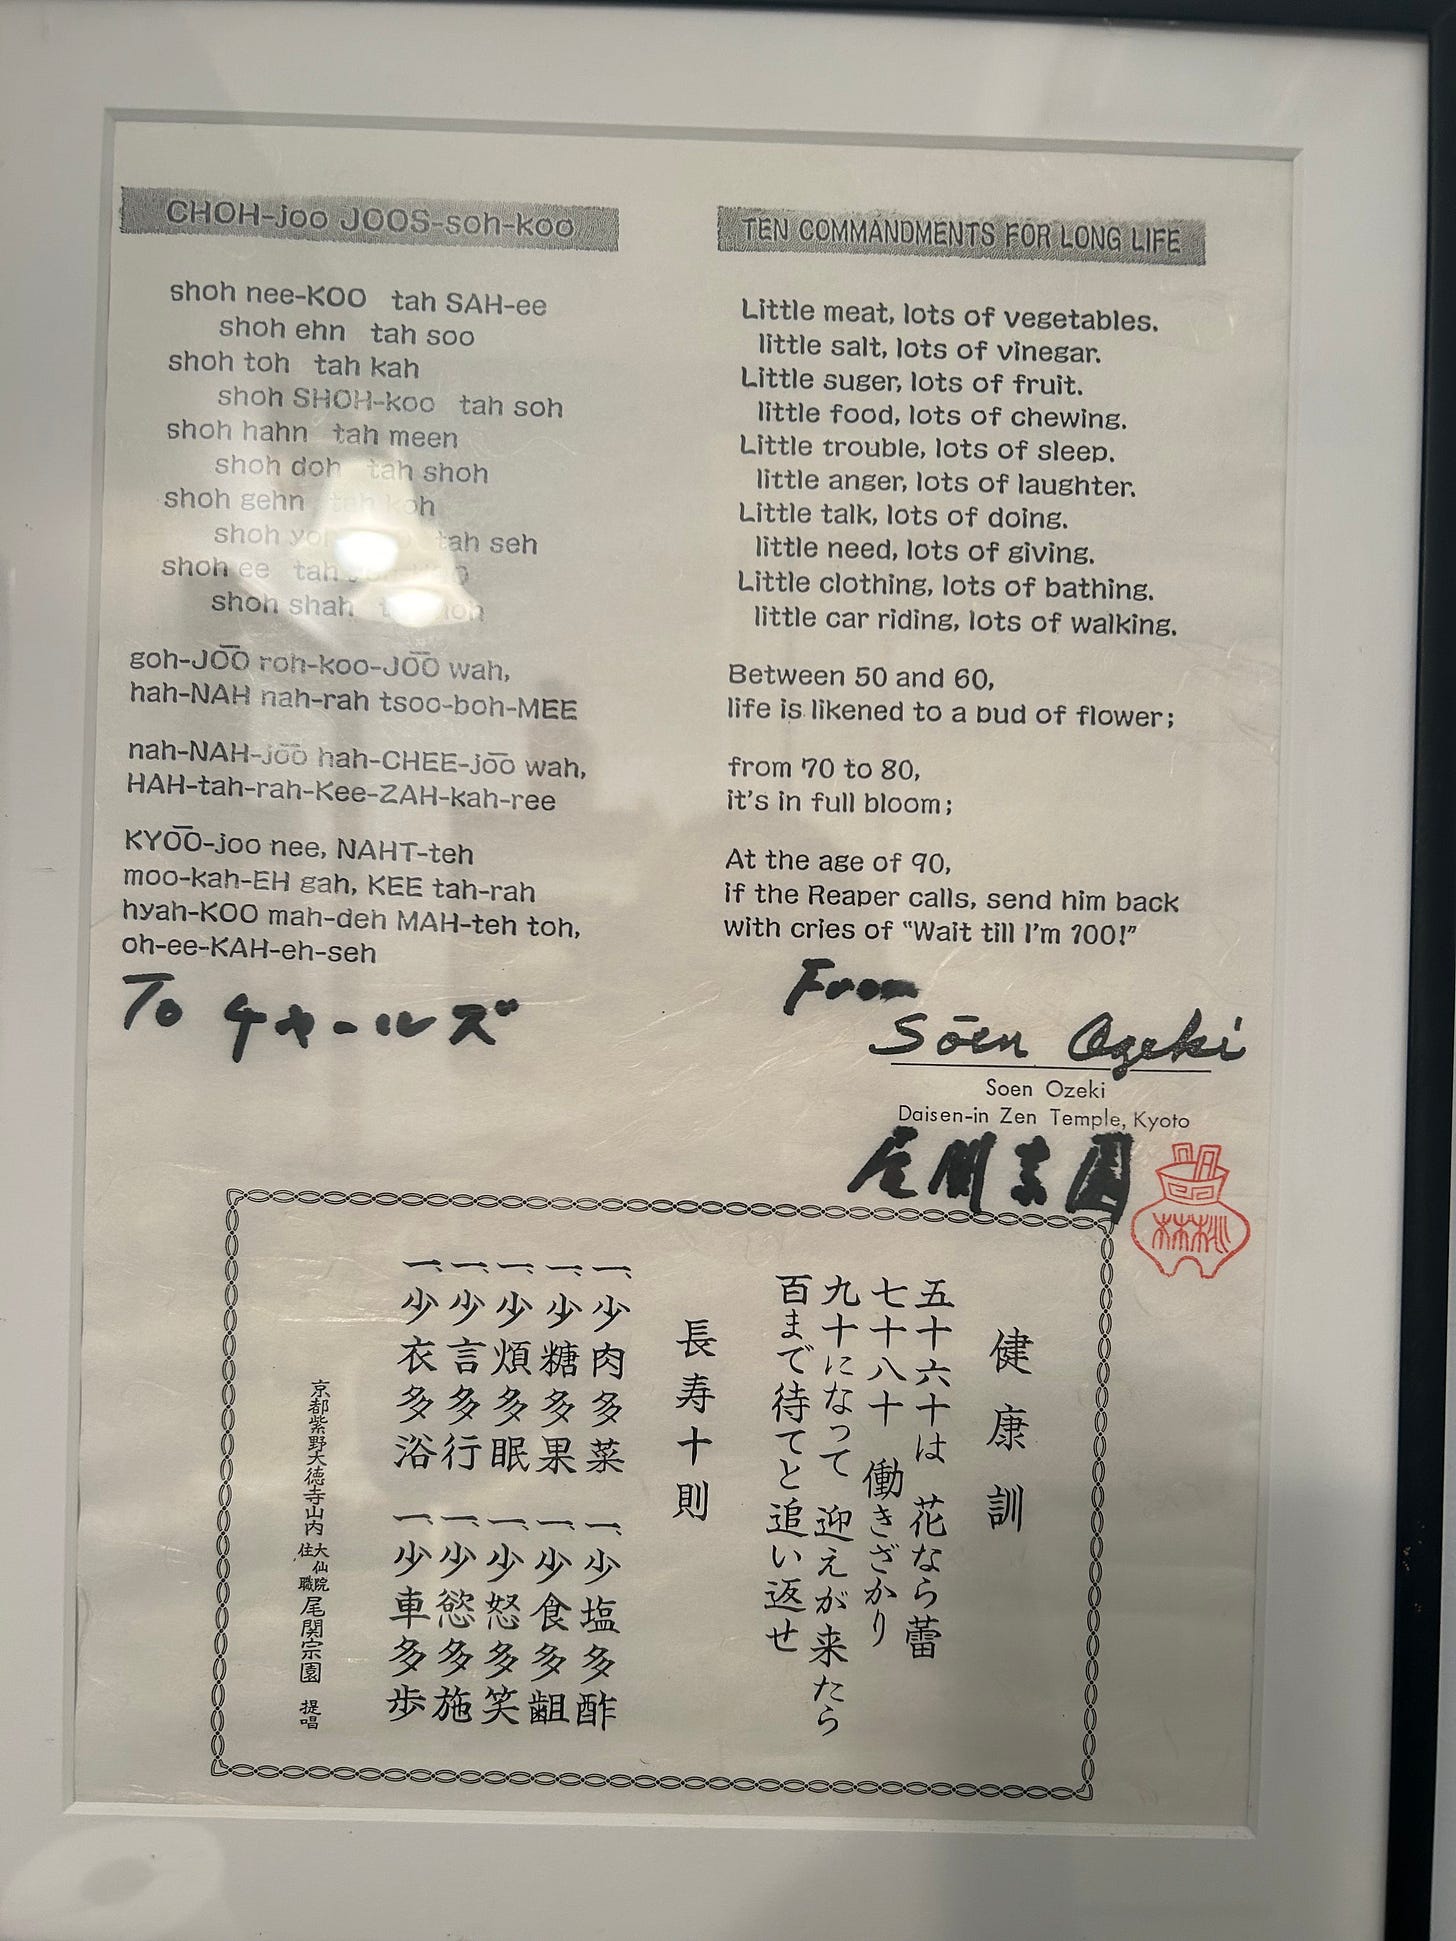 CHOH-joo JOOS-soh-koo
shoh nee-KOO tah SAH-ee
shoh ehn tah soo
shoh toh tah kah
shoh SHOH-koo tah soh
shoh hahn tah meen
shoh doh tah shoh
shoh gehn tah koh
shoh tah seh
shoh ee tah
shoh shah
goh-JŌŌ roh-koo-JŌŌ wah,
hah-NAH nah-rah tsoo-boh-MEE
nah-NAH-jōō hah-CHEE-jōō wah,
HAH-tah-rah-Kee-ZAH-kah-ree
KYŌŌ-joo nee, NAHT-teh
moo-kah-EH gah, KEE tah-rah
hyah-KOO mah-deh MAH-teh toh,
oh-ee-KAH-eh-seh
To チャールズ
TEN COMMANDMENTS FOR LONG LIFE
Little meat, lots of vegetables.
little salt, lots of vinegar.
Little suger, lots of fruit.
little food, lots of chewing.
Little trouble, lots of sleep.
little anger, lots of laughter.
Little talk, lots of doing.
little need, lots of giving.
Little clothing, lots of bathing.
little car riding, lots of walking.
Between 50 and 60,
life is likened to a bud of flower;
from 70 to 80,
it's in full bloom;
At the age of 90,
if the Reaper calls, send him back
with cries of "Wait till I'm 100!"
From
Sōen Ozeki
Soen Ozeki
Daisen-in Zen Temple, Kyoto
尾関宗園
健康訓
五十六十は 花なら蕾
七十八十 働きざかり
九十になって 迎えが来たら
百まで待てと追い返せ
長寿十則
一、少肉多菜 一、少塩多酢
一、少糖多果 一、少食多齟
一、少煩多眠 一、少怒多笑
一、少言多行 一、少慾多施
一、少衣多浴 一、少車多歩
京都紫野大徳寺山内 大仙院住職 尾関宗園 提唱